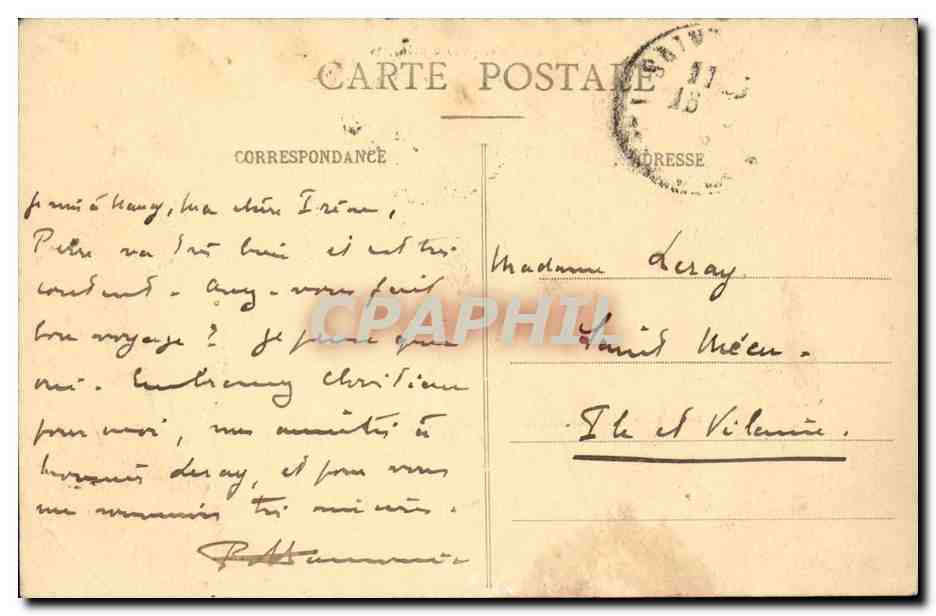 CARTE POSTALE
CORRESPONDANCE
ADRESSE
Je suis à Nancy, Ma chère Irène,
Pierre va très bien et est très
content - Avez-vous fait
bon voyage ? Je pense que
oui - Embrassez Christian
pour moi, mes amitiés à
Leray, et pour vous
très sincères.
Madame Leray
Saint Méen -
Ile et Vilaine.
CPAPHIL